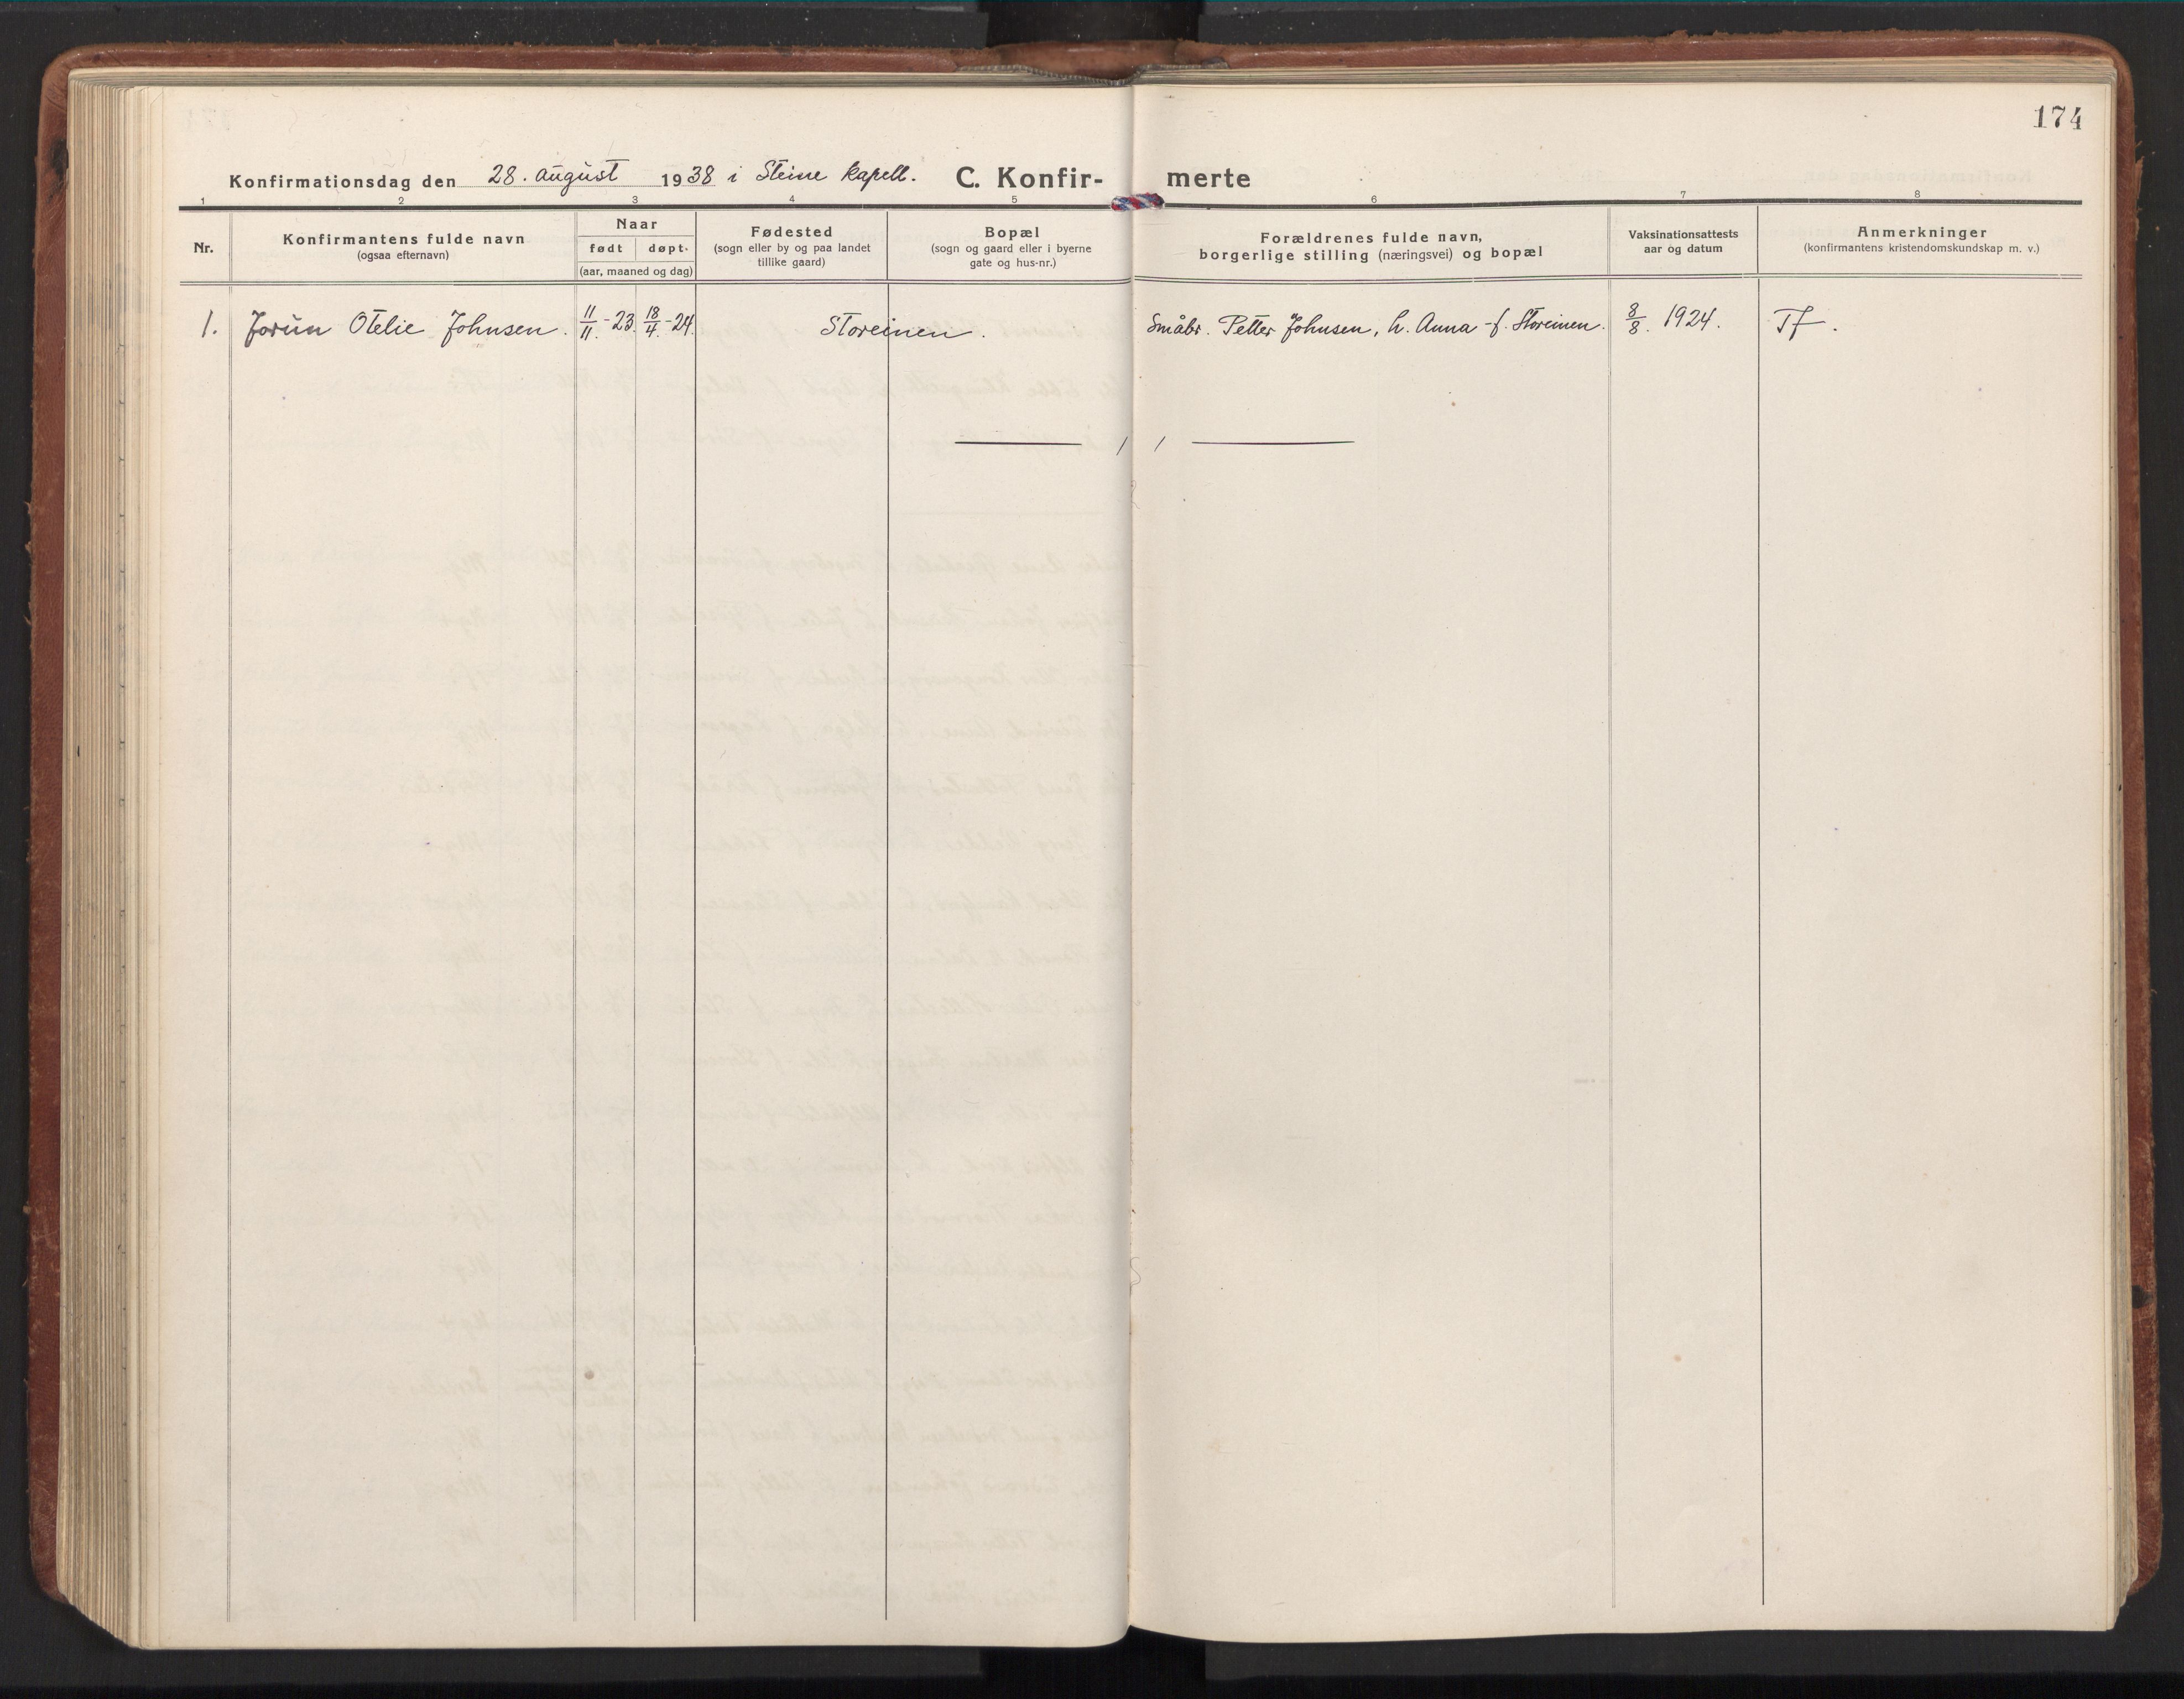 174
Konfirmationsdag den 28. august 1938 i Steine kapell. C. Konfir- merte
1 2 3 4 5 6 7 8
Nr.
Konfirmantens fulde navn
(ogsaa efternavn)
Naar
født døpt.
(aar, maaned og dag)
Fødested
(sogn eller by og paa landet
tillike gaard)
Bopæl
(sogn og gaard eller i byerne
gate og hus-nr.)
Forældrenes fulde navn,
borgerlige stilling (næringsvei) og bopæl
Vaksinationsattests
aar og datum
Anmerkninger
(konfirmantens kristendomskundskap m. v.)
1. Jorun Otelie Johnsen. 11/11.-23. 18/4.-24. Storeinen. Småbr. Petter Johnsen, h. Anna f. Storeinen. 8/8. 1924. Tf.